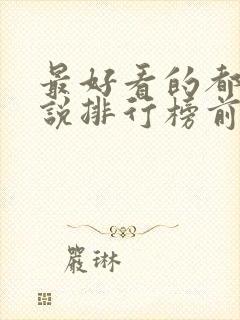 最好看的都
說排行榜前
嚴琳